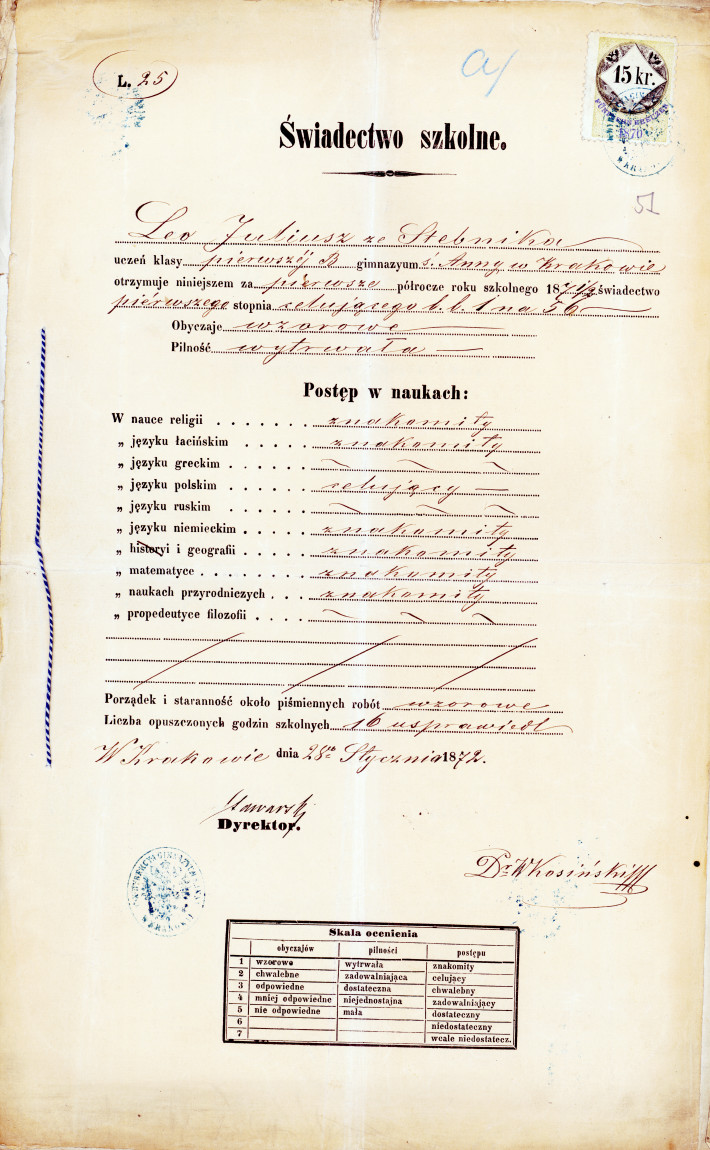 L. 25
a/
15 kr.
51
Świadectwo szkolne.
Leo Juliusz ze Stebnika
uczeń klasy pierwszéj B gimnazyum ś. Anny w Krakowie
otrzymuje niniejszem za pierwsze półrocze roku szkolnego 1871/2 świadectwo
pierwszego stopnia celującego l. l. 1 na 56
Obyczaje wzorowe
Pilność wytrwała
Postęp w naukach:
W nauce religii znakomity
„ języku łacińskim znakomity
„ języku greckim
„ języku polskim celujący
„ języku ruskim
„ języku niemieckim znakomity
„ historyi i geografii znakomity
„ matematyce znakomity
„ naukach przyrodniczych znakomity
„ propedeutyce filozofii
Porządek i staranność około piśmiennych robót wzorowe
Liczba opuszczonych godzin szkolnych 16 usprawiedl
W Krakowie dnia 28go Stycznia 1872.
Stawarski
Dyrektor.
Dr. W Kosiński
Skala ocenienia
obyczajów pilności postępu
1 wzorowe wytrwała znakomity
2 chwalebne zadowalniająca celujący
3 odpowiedne dostateczna chwalebny
4 mniej odpowiedne niejednostajna zadowalniający
5 nie odpowiedne mała dostateczny
6 niedostateczny
7 wcale niedostatecz.